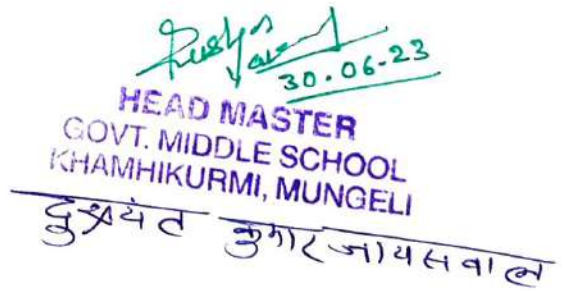 30.06-23
HEAD MASTER
GOVT. MIDDLE SCHOOL
KHAMHIKURMI, MUNGELI
दुष्यंत कुमार जायसवाल